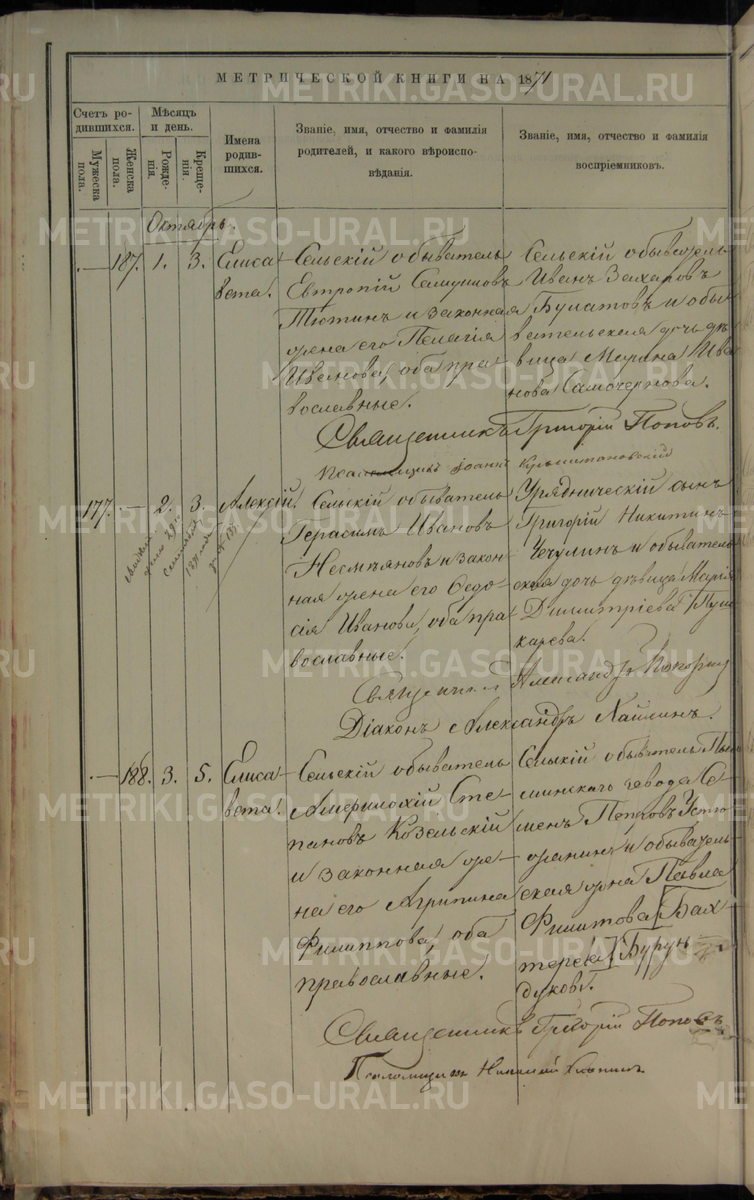 МЕТРИЧЕСКОЙ КНИГИ НА 1871
Счетъ родившихся.
Мужеска пола.
Женска пола.
Мѣсяцъ и день.
Рожденія.
Крещенія.
Имена родившихся.
Званіе, имя, отчество и фамилія
родителей, и какого вѣроиспо-
вѣданія.
Званіе, имя, отчество и фамилія
воспріемниковъ.
Октябрь.
187. 1. 3. Елиса
вета.
Сельскій обыватель
Евтропій
Тютинъ и законная
жена его Пелагія
Иванова, оба пра
вославные.
Сельскій обыватель
Иванъ Захаровъ
Булатовъ и обы
вательская дочь дѣ
вица Марѳа Ива
нова Самочернова.
Священникъ Григорій Поповъ.
Іоаннъ
177. 2. 3. Алексій.
Сельскій обыватель
Герасимъ Ивановъ
и закон
ная жена его Ѳедо
сія Иванова, оба пра
вославные.
Урядническій сынъ
Григорій Никитинъ
Чечулинъ и обыватель
ская дочь дѣвица Марія
Димитріева Пуш
карева.
Священникъ Александръ
Діаконъ Александръ
188. 3. 5. Елиса
вета.
Сельскій обыватель
Амфилохій Сте
пановъ Козельскій
и законная же
на его Агрипина
Филиппова, оба
православные.
Сельскій обыватель
завода Се
менъ Петровъ Устю
жанинъ и обыватель
ская жена Павла
Филитова Бах
терева Бурун
дукова.
Священникъ Григорій Поповъ
Псаломщикъ Николай
METRIKI.GASO-URAL.RU